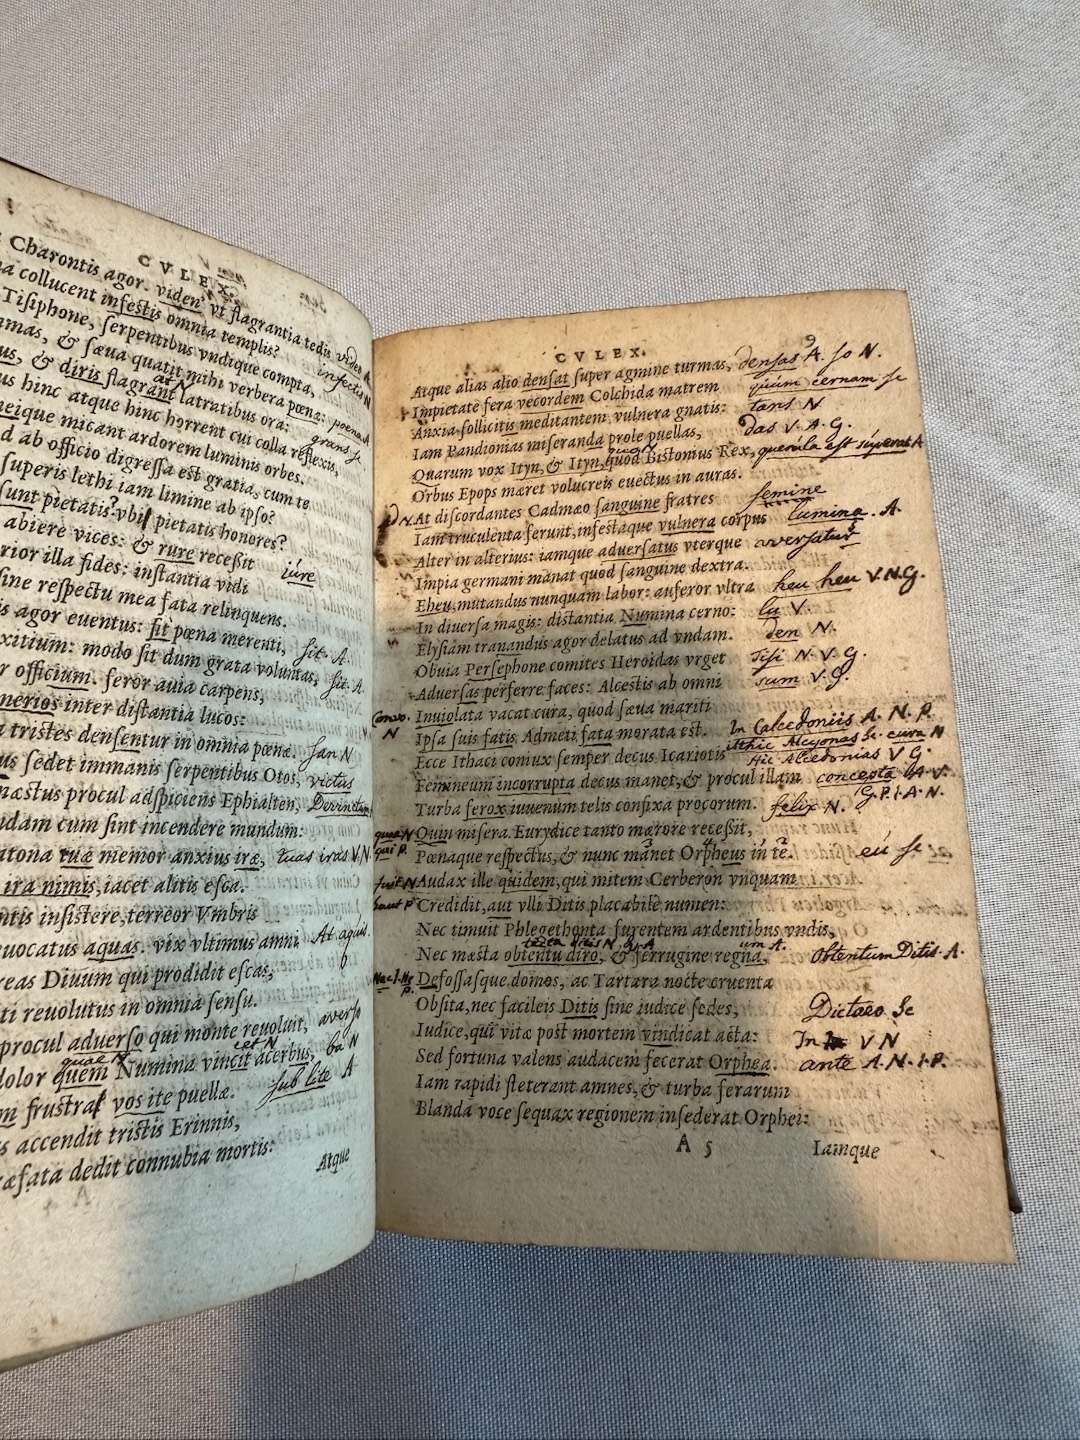 CVLEX.
Charontis agor. viden' vt flagrantia tedis
collucent infestis omnia templis?
Tiſiphone, ſerpentibus vndique compta,
& ſæua quatit mihi verbera pœnæ:
& diris flagrant latratibus ora:
hinc atque hinc horrent cui colla reflexis,
micant ardorem luminis orbes.
ab officio digreſſa est gratia, cum te
ſuperis lethi iam limine ab ipſo?
pietatis? vbi pietatis honores?
abiere vices: & rure receſsit
illa fides: inſtantia vidi
reſpectu mea fata relinquens.
agor euentus: ſit pœna merenti,
modo ſit dum grata voluntas,
officium. feror auia carpens,
inter diſtantia lucos:
tristes denſentur in omnia pœnæ.
ſedet immanis ſerpentibus Otos,
mæstus procul adſpiciens Ephialten,
cum ſint incendere mundum:
tuæ memor anxius iræ,
ira nimis, iacet alitis eſca.
inſistere, terreor Vmbris
aquas. vix vltimus amni
Diuum qui prodidit eſcas,
reuolutus in omnia ſenſu.
procul aduerſo qui monte reuoluit,
dolor quem Numina vincit acerbus,
frustra vos ite puellæ.
accendit tristis Erinnis,
dedit connubia mortis:
Atque
viden A.
infectis N
at N
poena A
grans ſc
iure
ſit. A.
ſit A.
ſan N
victus
tuas iras V N
At aquis
averſo
quae N
cet N
ba N
ſub lite A
9
CVLEX.
Atque alias alio denſat ſuper agmine turmas, denſas A. ſo N.
Impietate fera vecordem Colchida matrem quum cernam ſc
Anxia ſollicitis meditantem vulnera gnatis: tans N
Iam Pandionias miſeranda prole puellas, das V. A. G.
Quarum vox Ityn, & Ityn, quod Bistonius Rex, querula est ſuperat A
Orbus Epops mæret volucreis euectus in auras.
At diſcordantes Cadmæo ſanguine fratres ſemine
Iam truculenta ferunt, infestaque vulnera corpus lumina. A.
Alter in alterius: iamque aduerſatus vterque averſatur
Impia germani manat quod ſanguine dextra.
Eheu, mutandus nunquam labor: auferor vltra heu heu V. N. G.
In diuerſa magis: distantia Numina cerno: lu V.
Elyſiam tranandus agor delatus ad vndam. dem N.
Obuia Perſephone comites Heroidas vrget Tiſi N. V. G.
Aduerſas perferre faces: Alcestis ab omni sum V. G.
Inuiolata vacat cura, quod ſæua mariti
Ipſa ſuis fatis Admeti fata morata est. In Calcedoniis A. N. P.
Ecce Ithaci coniux ſemper decus Icariotis illhic Alcyonas Sc. cura N
Hic Alcedonias V G
Femineum incorrupta decus manet, & procul illam concepta A. V.
G. P. I. A. N.
Turba ferox iuuenum telis confixa procorum. felix N.
qua N Quin miſera Eurydice tanto mærore receſsit,
qui P. Pœnaque reſpectus, & nunc manet Orpheus in te. eú ſc
fuit N Audax ille quidem, qui mitem Cerberon vnquam
haut P Credidit, aut vlli Ditis placabile numen:
Nec timuit Phlegethonta furentem ardentibus vndis,
Nec mæsta obtentu diro, & ferrugine regna, obtentum Ditis A.
um A.
Defoſſaſque domos, ac Tartara nocte cruenta
Obſita, nec facileis Ditis ſine iudice ſedes, Dictaeo Sc
Iudice, qui vitæ post mortem vindicat acta: In V N
Sed fortuna valens audacem fecerat Orphea. ante A. N. I. P.
Iam rapidi steterant amnes, & turba ferarum
Blanda voce ſequax regionem inſederat Orphei:
A 5 Iamque